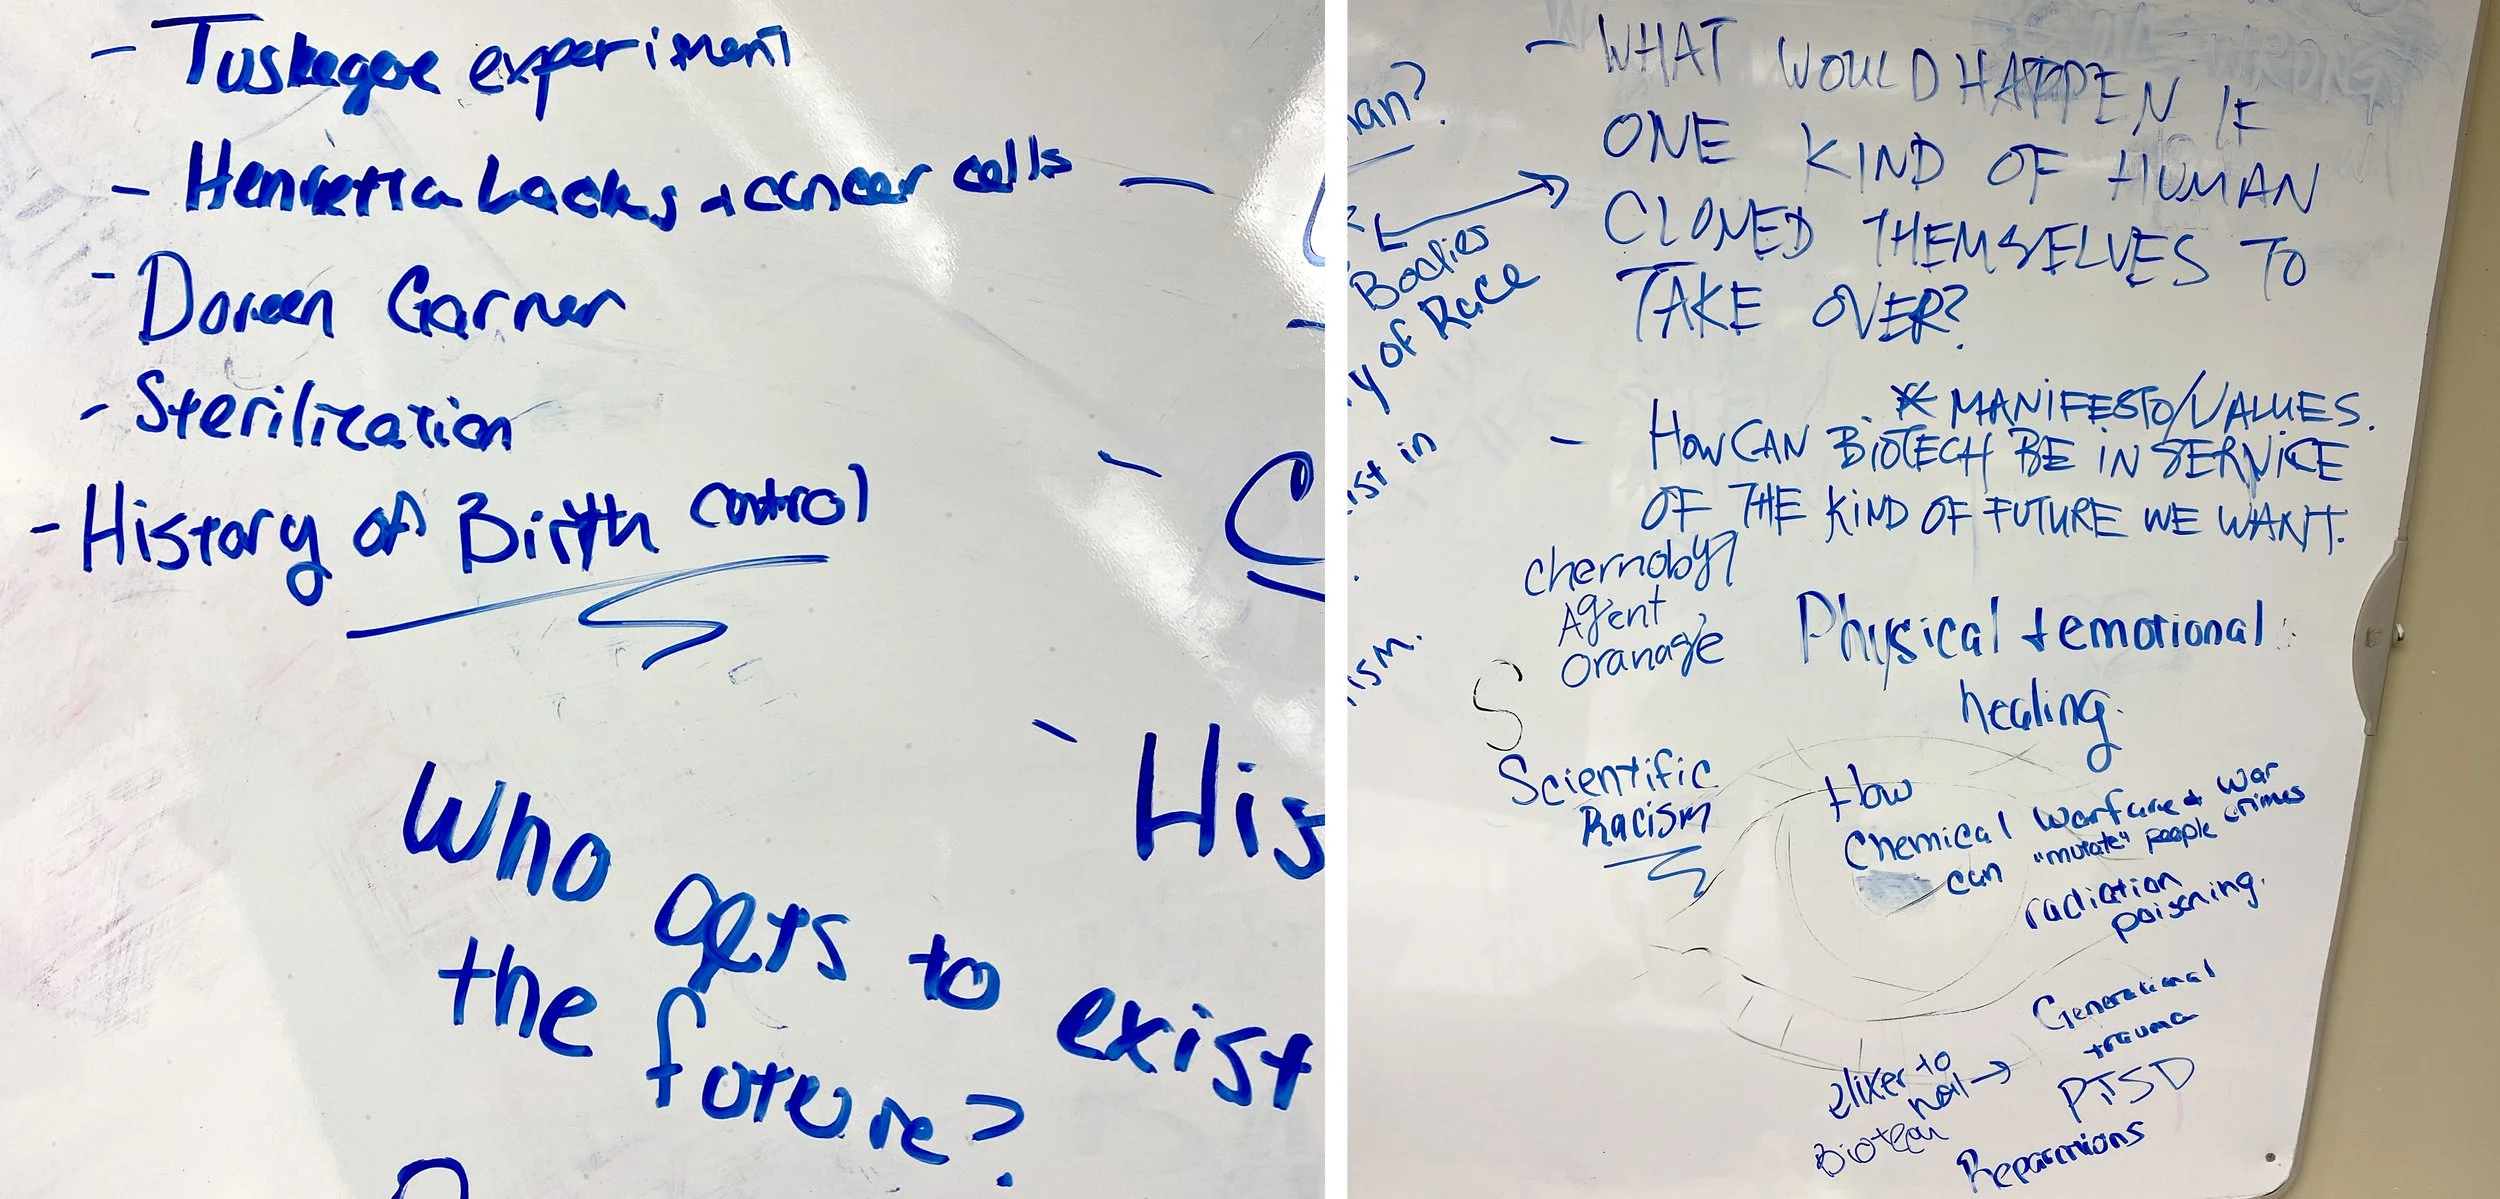 - Tuskegee experiment
- Henrietta Lacks + cancer cells -
- Doreen Garner
- Sterilization
- History of Birth control
C
- His
Who gets to exist
the future?
- WHAT WOULD HAPPEN IF
ONE KIND OF HUMAN
CLONED THEMSELVES TO
TAKE OVER?
an?
Bodies
y of Race
ist in
ism.
* MANIFESTO/VALUES.
- HOW CAN BIOTECH BE IN SERVICE
OF THE KIND OF FUTURE WE WANT.
chernobyl
Agent
Oranage
Physical + emotional
healing.
S
Scientific
Racism
How
Chemical warfare + war
crimes
can "mutate" people
radiation
poisoning.
Generational
trauma
elixer to
heal →
PTSD
Reparations